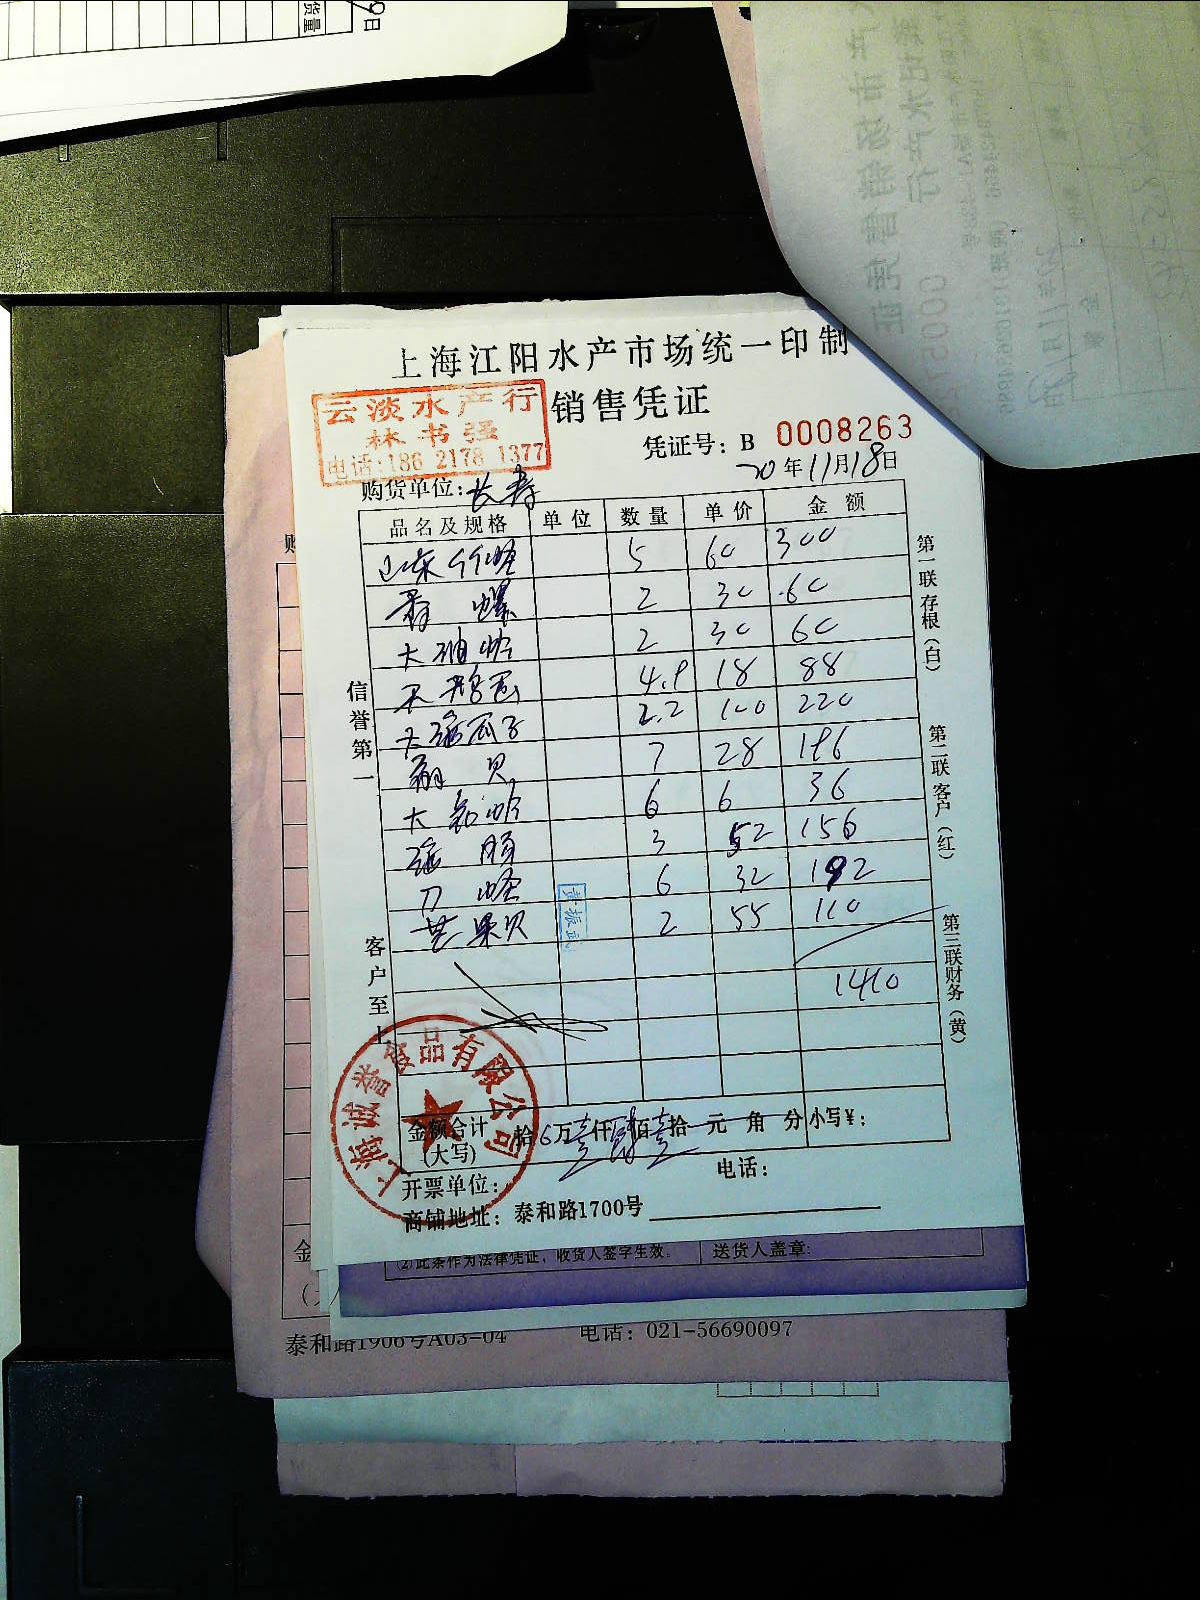 货量
9日
上海江阳水产市场统一印制
销售凭证
云淡水产行
林书强
电话:186 2178 1377
凭证号: B 0008263
20年11月18日
购货单位: 长寿
品名及规格 单位 数量 单价 金额
山东竹蛏 5 60 300
螺 2 30 60
大 2 30 60
4.9 18 88
大 瓜子 2.2 100 220
贝 7 28 196
大 6 6 36
3 52 156
刀蛏 6 32 192
芒果贝 2 55 110
1410
黄振武
信誉第一
客户至上
第一联存根(白)
第二联客户(红)
第三联财务(黄)
上海诚誉食品有限公司
金额合计(大写) 拾万壹仟肆百壹拾元角分 小写¥:
开票单位: 电话:
商铺地址: 泰和路1700号
(2)此条作为法律凭证,收货人签字生效。 送货人盖章:
泰和路1906号A03-04 电话: 021-56690097